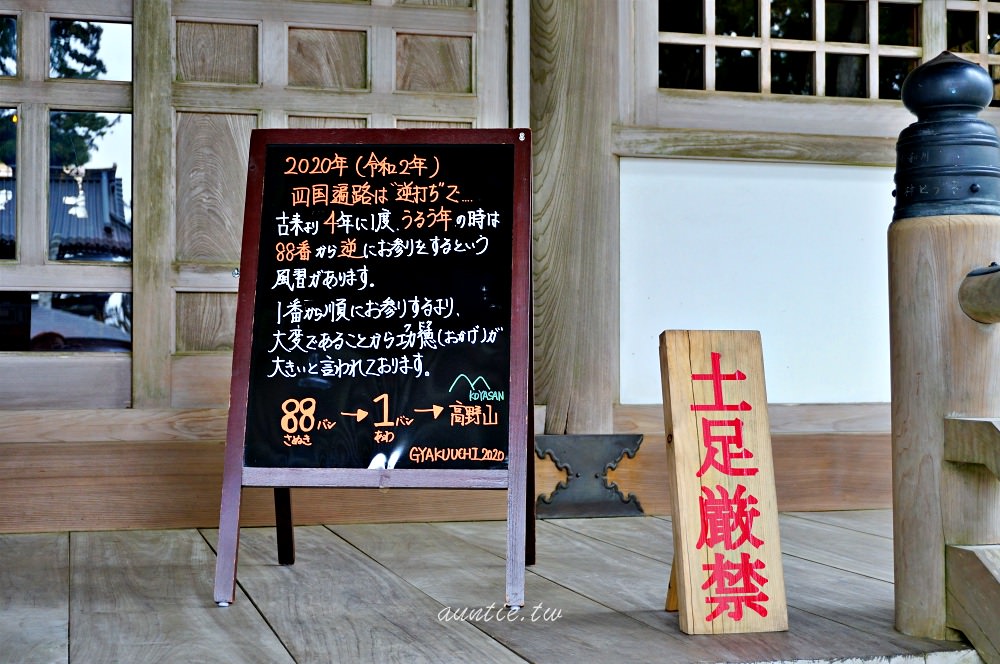 2020年(令和2年)
四国遍路は"逆打ち"で....
古来より4年に1度、うるう年の時は
88番から逆にお参りをするという
風習があります。
1番から順にお参りするより、
大変であることから功徳(おかげ)が
大きいと言われております。
KOYASAN
88バン→1バン→高野山
さぬき あわ
GYAKUUCHI 2020
土足厳禁
auntie.tw